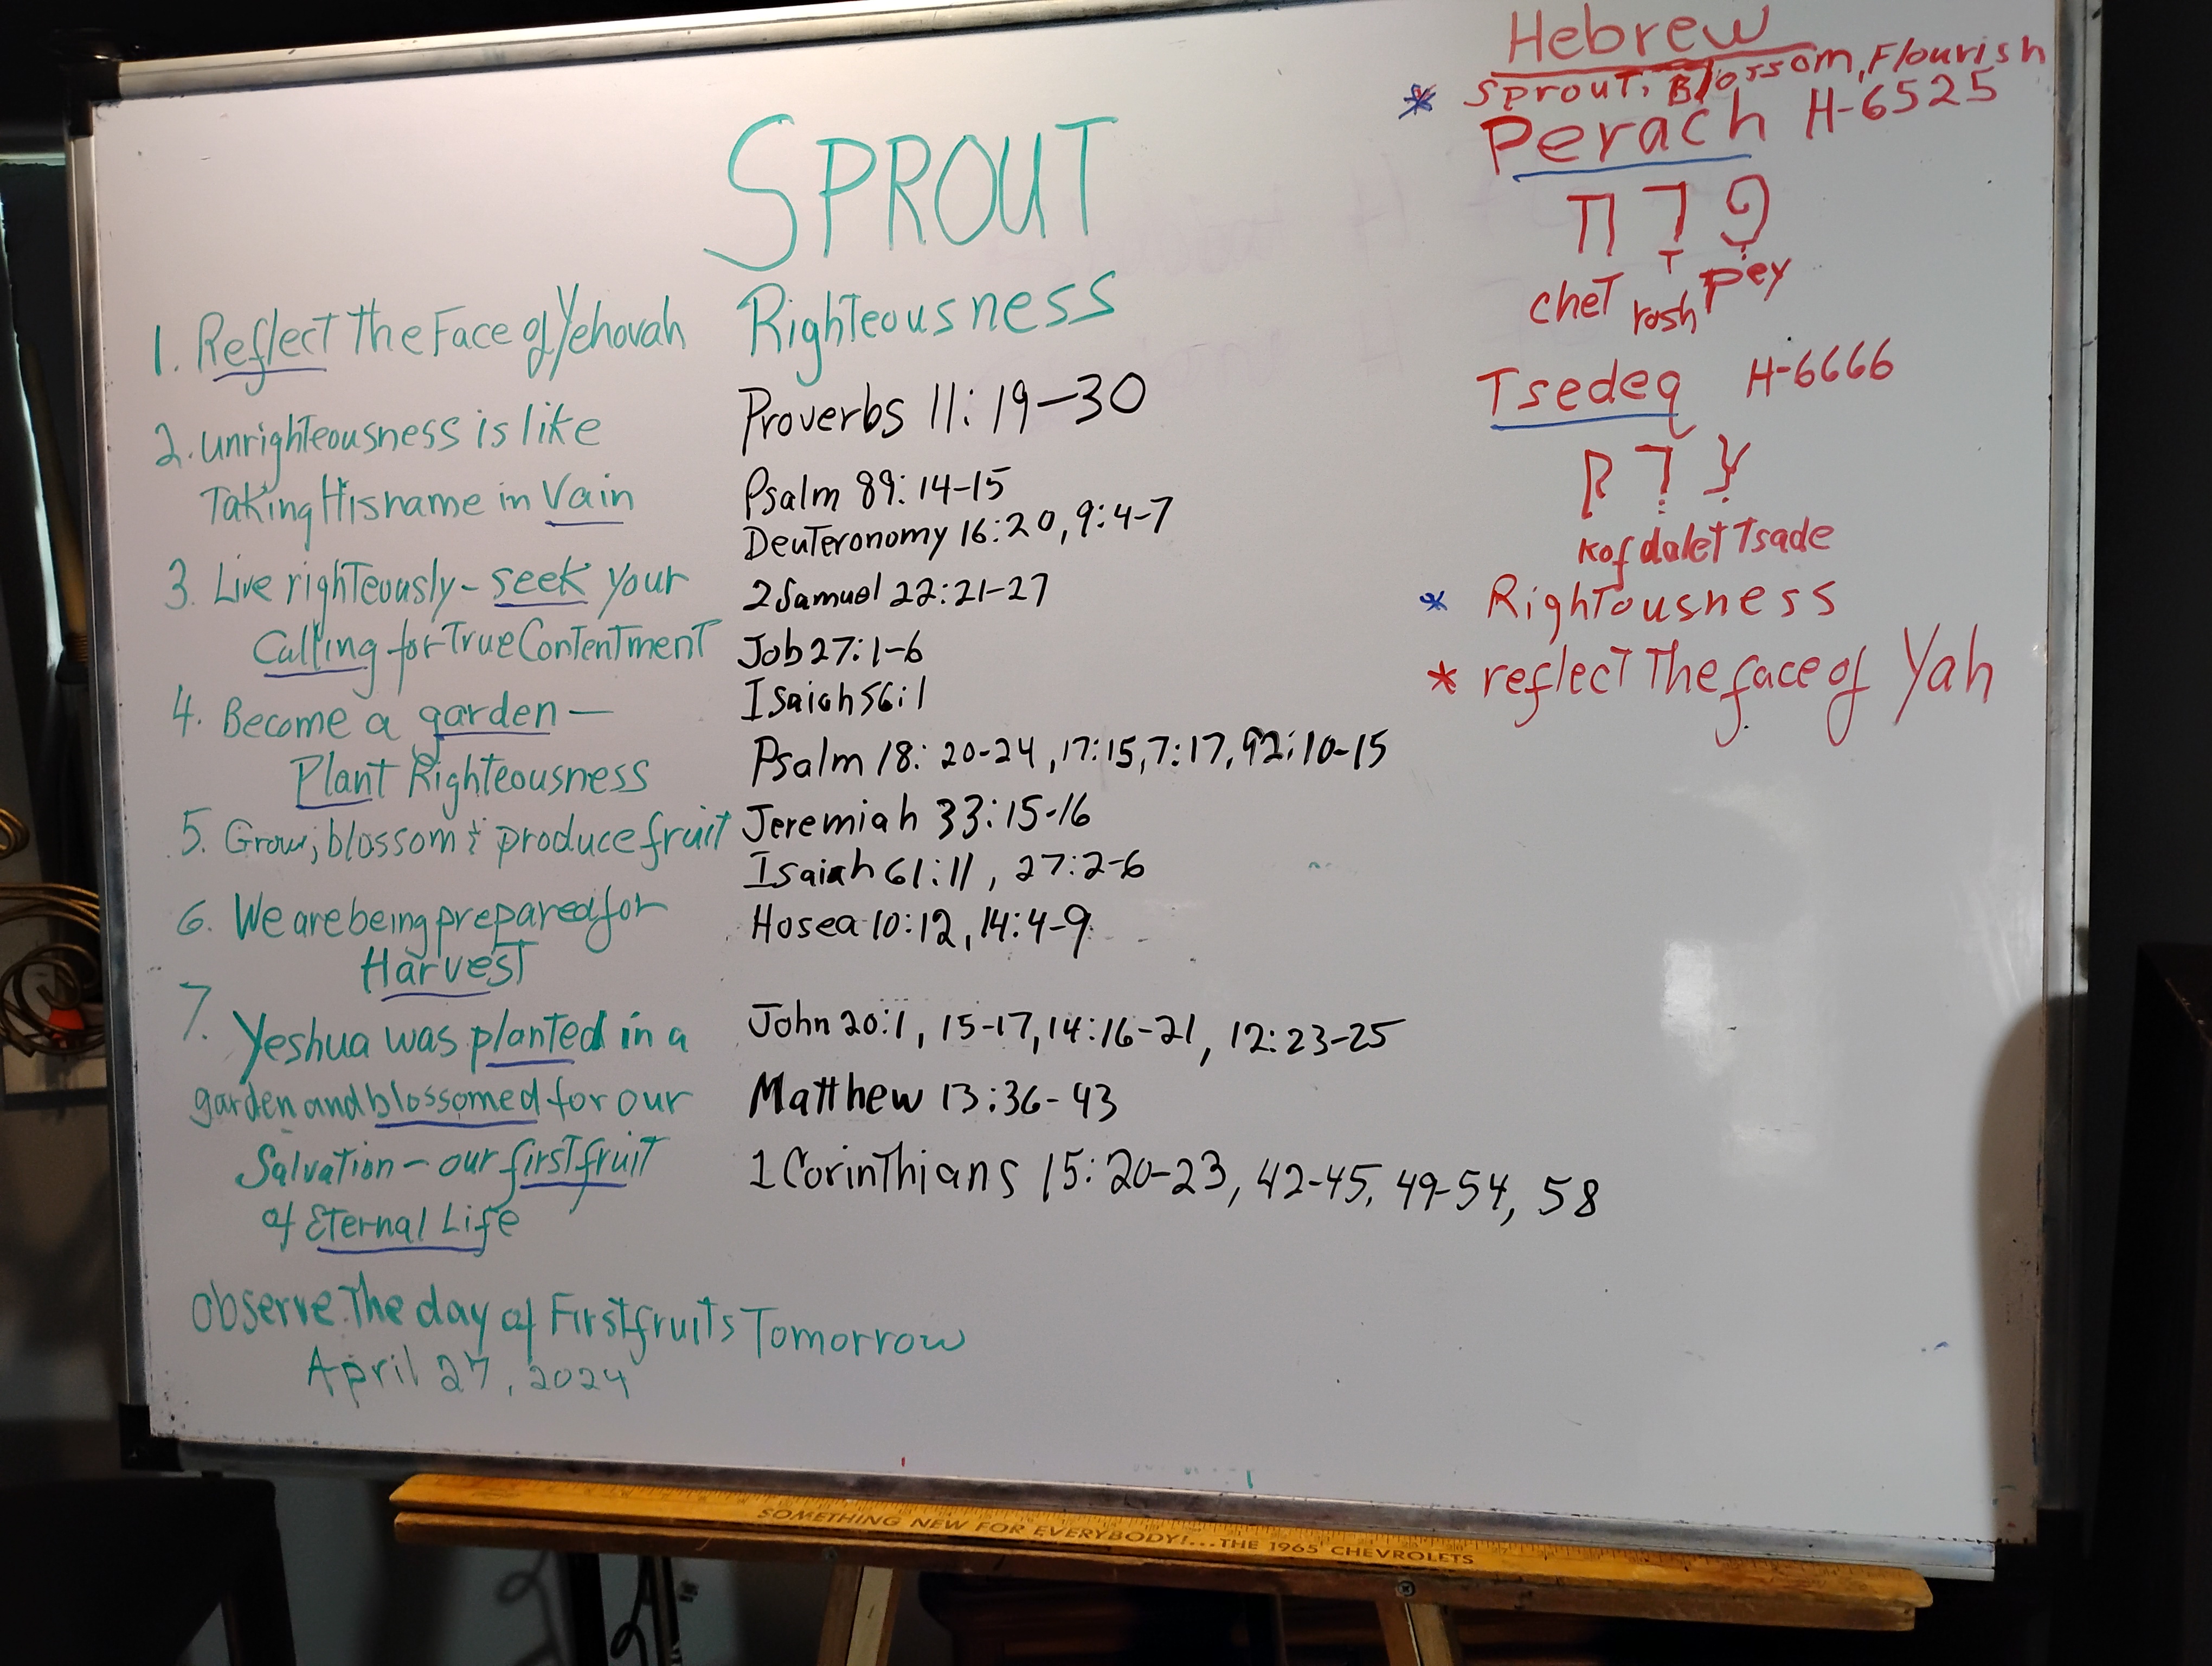 SPROUT
Righteousness
1. Reflect The Face of Yehovah
2. unrighteousness is like
Taking His name in Vain
3. Live righteously - seek your
Calling for True Contentment
4. Become a garden —
Plant Righteousness
5. Grow, blossom & produce fruit
6. We are being prepared for
Harvest
7. Yeshua was planted in a
garden and blossomed for our
Salvation - our firstfruit
of Eternal Life
Observe The day of Firstfruits Tomorrow
April 27, 2024
Proverbs 11:19-30
Psalm 89:14-15
Deuteronomy 16:20, 9:4-7
2 Samuel 22:21-27
Job 27:1-6
Isaiah 56:1
Psalm 18: 20-24, 17:15, 7:17, 92:10-15
Jeremiah 33:15-16
Isaiah 61:11, 27:2-6
Hosea 10:12, 14:4-9
John 20:1, 15-17, 14:16-21, 12:23-25
Matthew 13:36-43
1 Corinthians 15:20-23, 42-45, 49-54, 58
Hebrew
* Sprout, Blossom, Flourish
Perach H-6525
פֶּרָח
chet rosh Pey
Tsedeq H-6666
צֶדֶק
Kof dalet Tsade
* Rightousness
* reflect The face of Yah
SOMETHING NEW FOR EVERYBODY!...THE 1965 CHEVROLETS